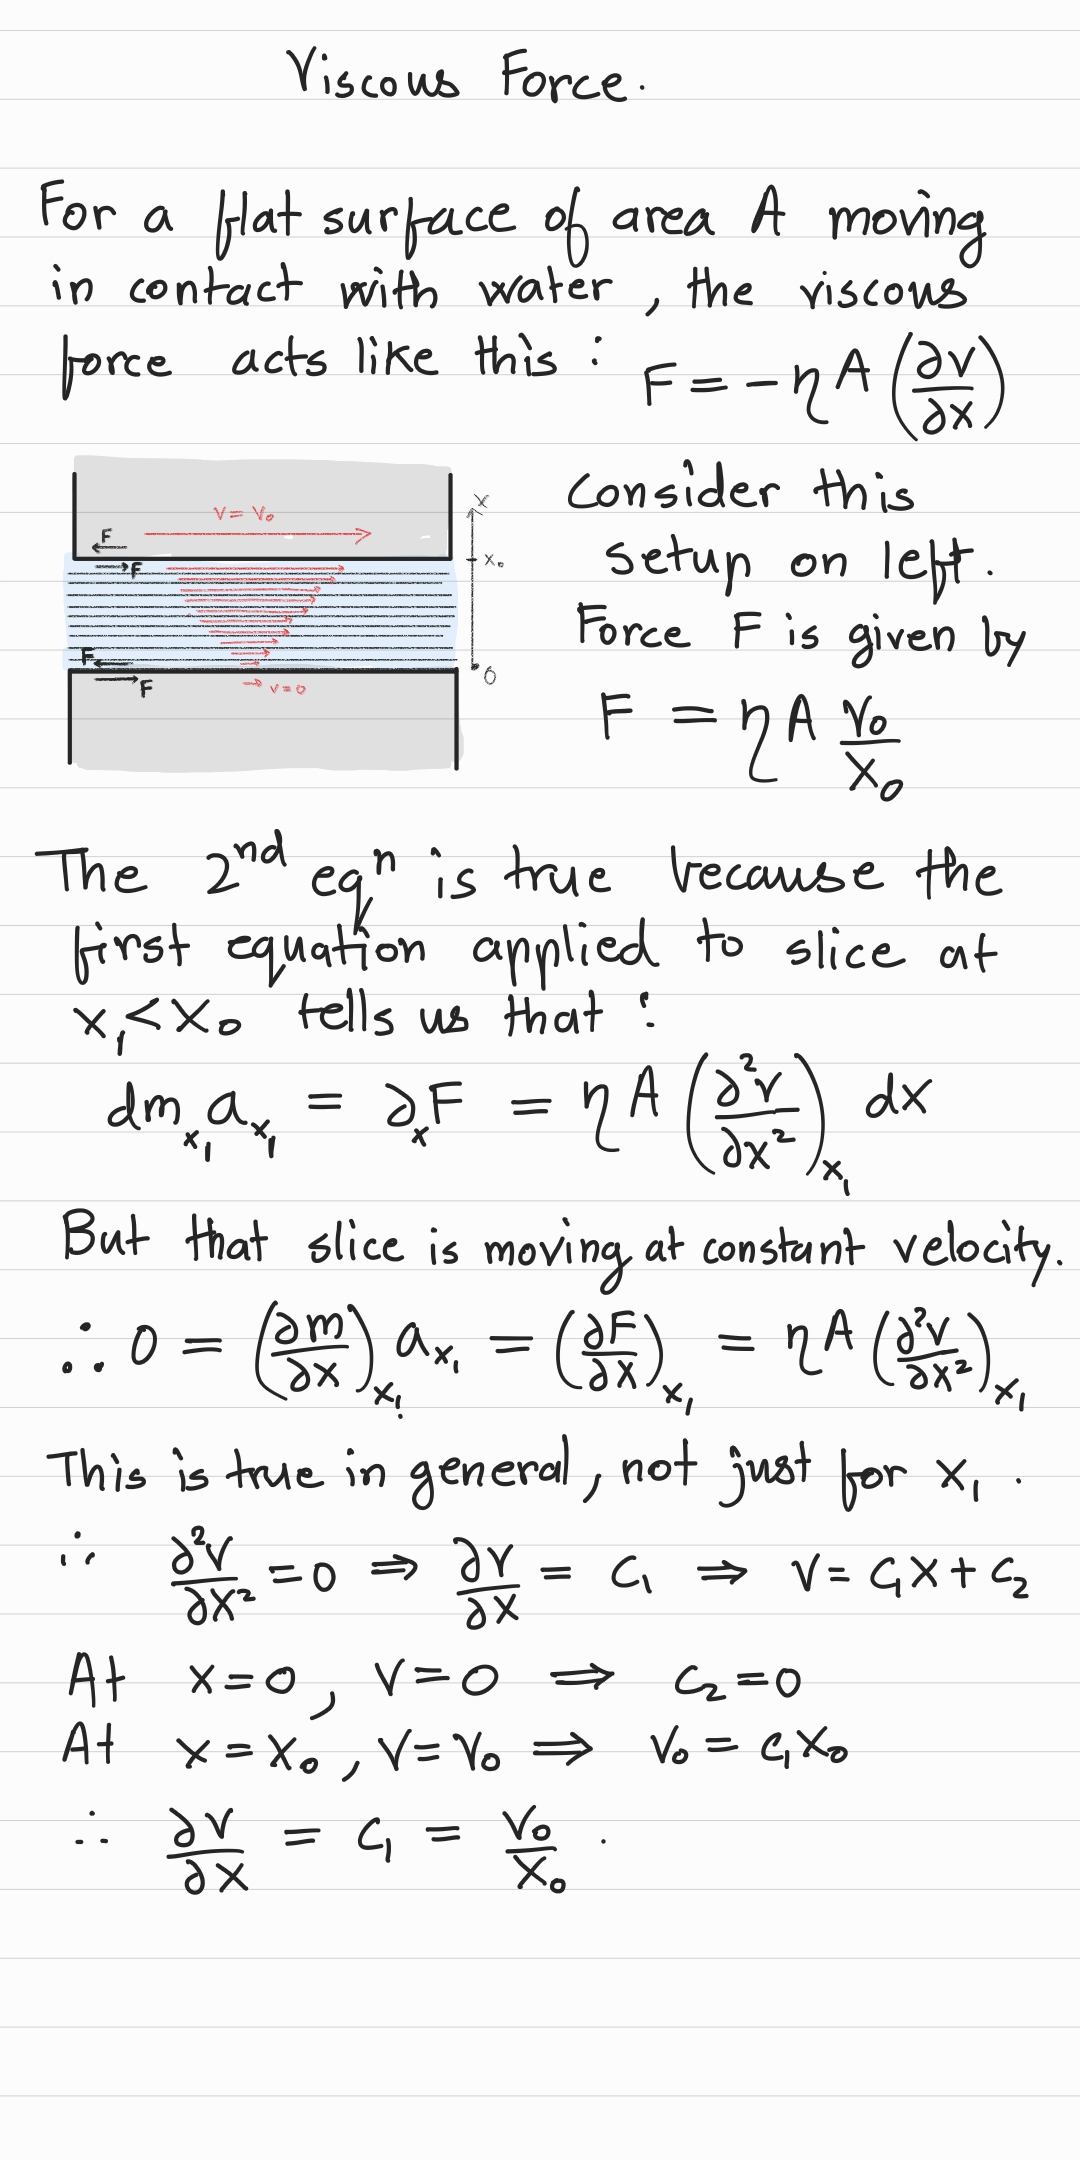 Viscous Force.
For a flat surface of area A moving
in contact with water, the viscous
force acts like this : F = -η A (∂v/∂x)
V = V₀
F
F
F
F
v=0
x
x₀
0
Consider this
setup on left.
Force F is given by
F = η A V₀/X₀
The 2ⁿᵈ eqⁿ is true because the
first equation applied to slice at
x₁<x₀ tells us that :
dm_x₁ a_x₁ = ∂ₓF = η A (∂²v/∂x²)_x₁ dx
But that slice is moving at constant velocity.
∴ 0 = (∂m/∂x)_x₁ a_x₁ = (∂F/∂x)_x₁ = η A (∂²v/∂x²)_x₁
This is true in general, not just for x₁.
∴ ∂²v/∂x² = 0 ⇒ ∂v/∂x = C₁ ⇒ v = C₁x + C₂
At x=0, v=0 ⇒ C₂=0
At x=x₀, v=v₀ ⇒ v₀ = C₁x₀
∴ ∂v/∂x = C₁ = v₀/x₀ .